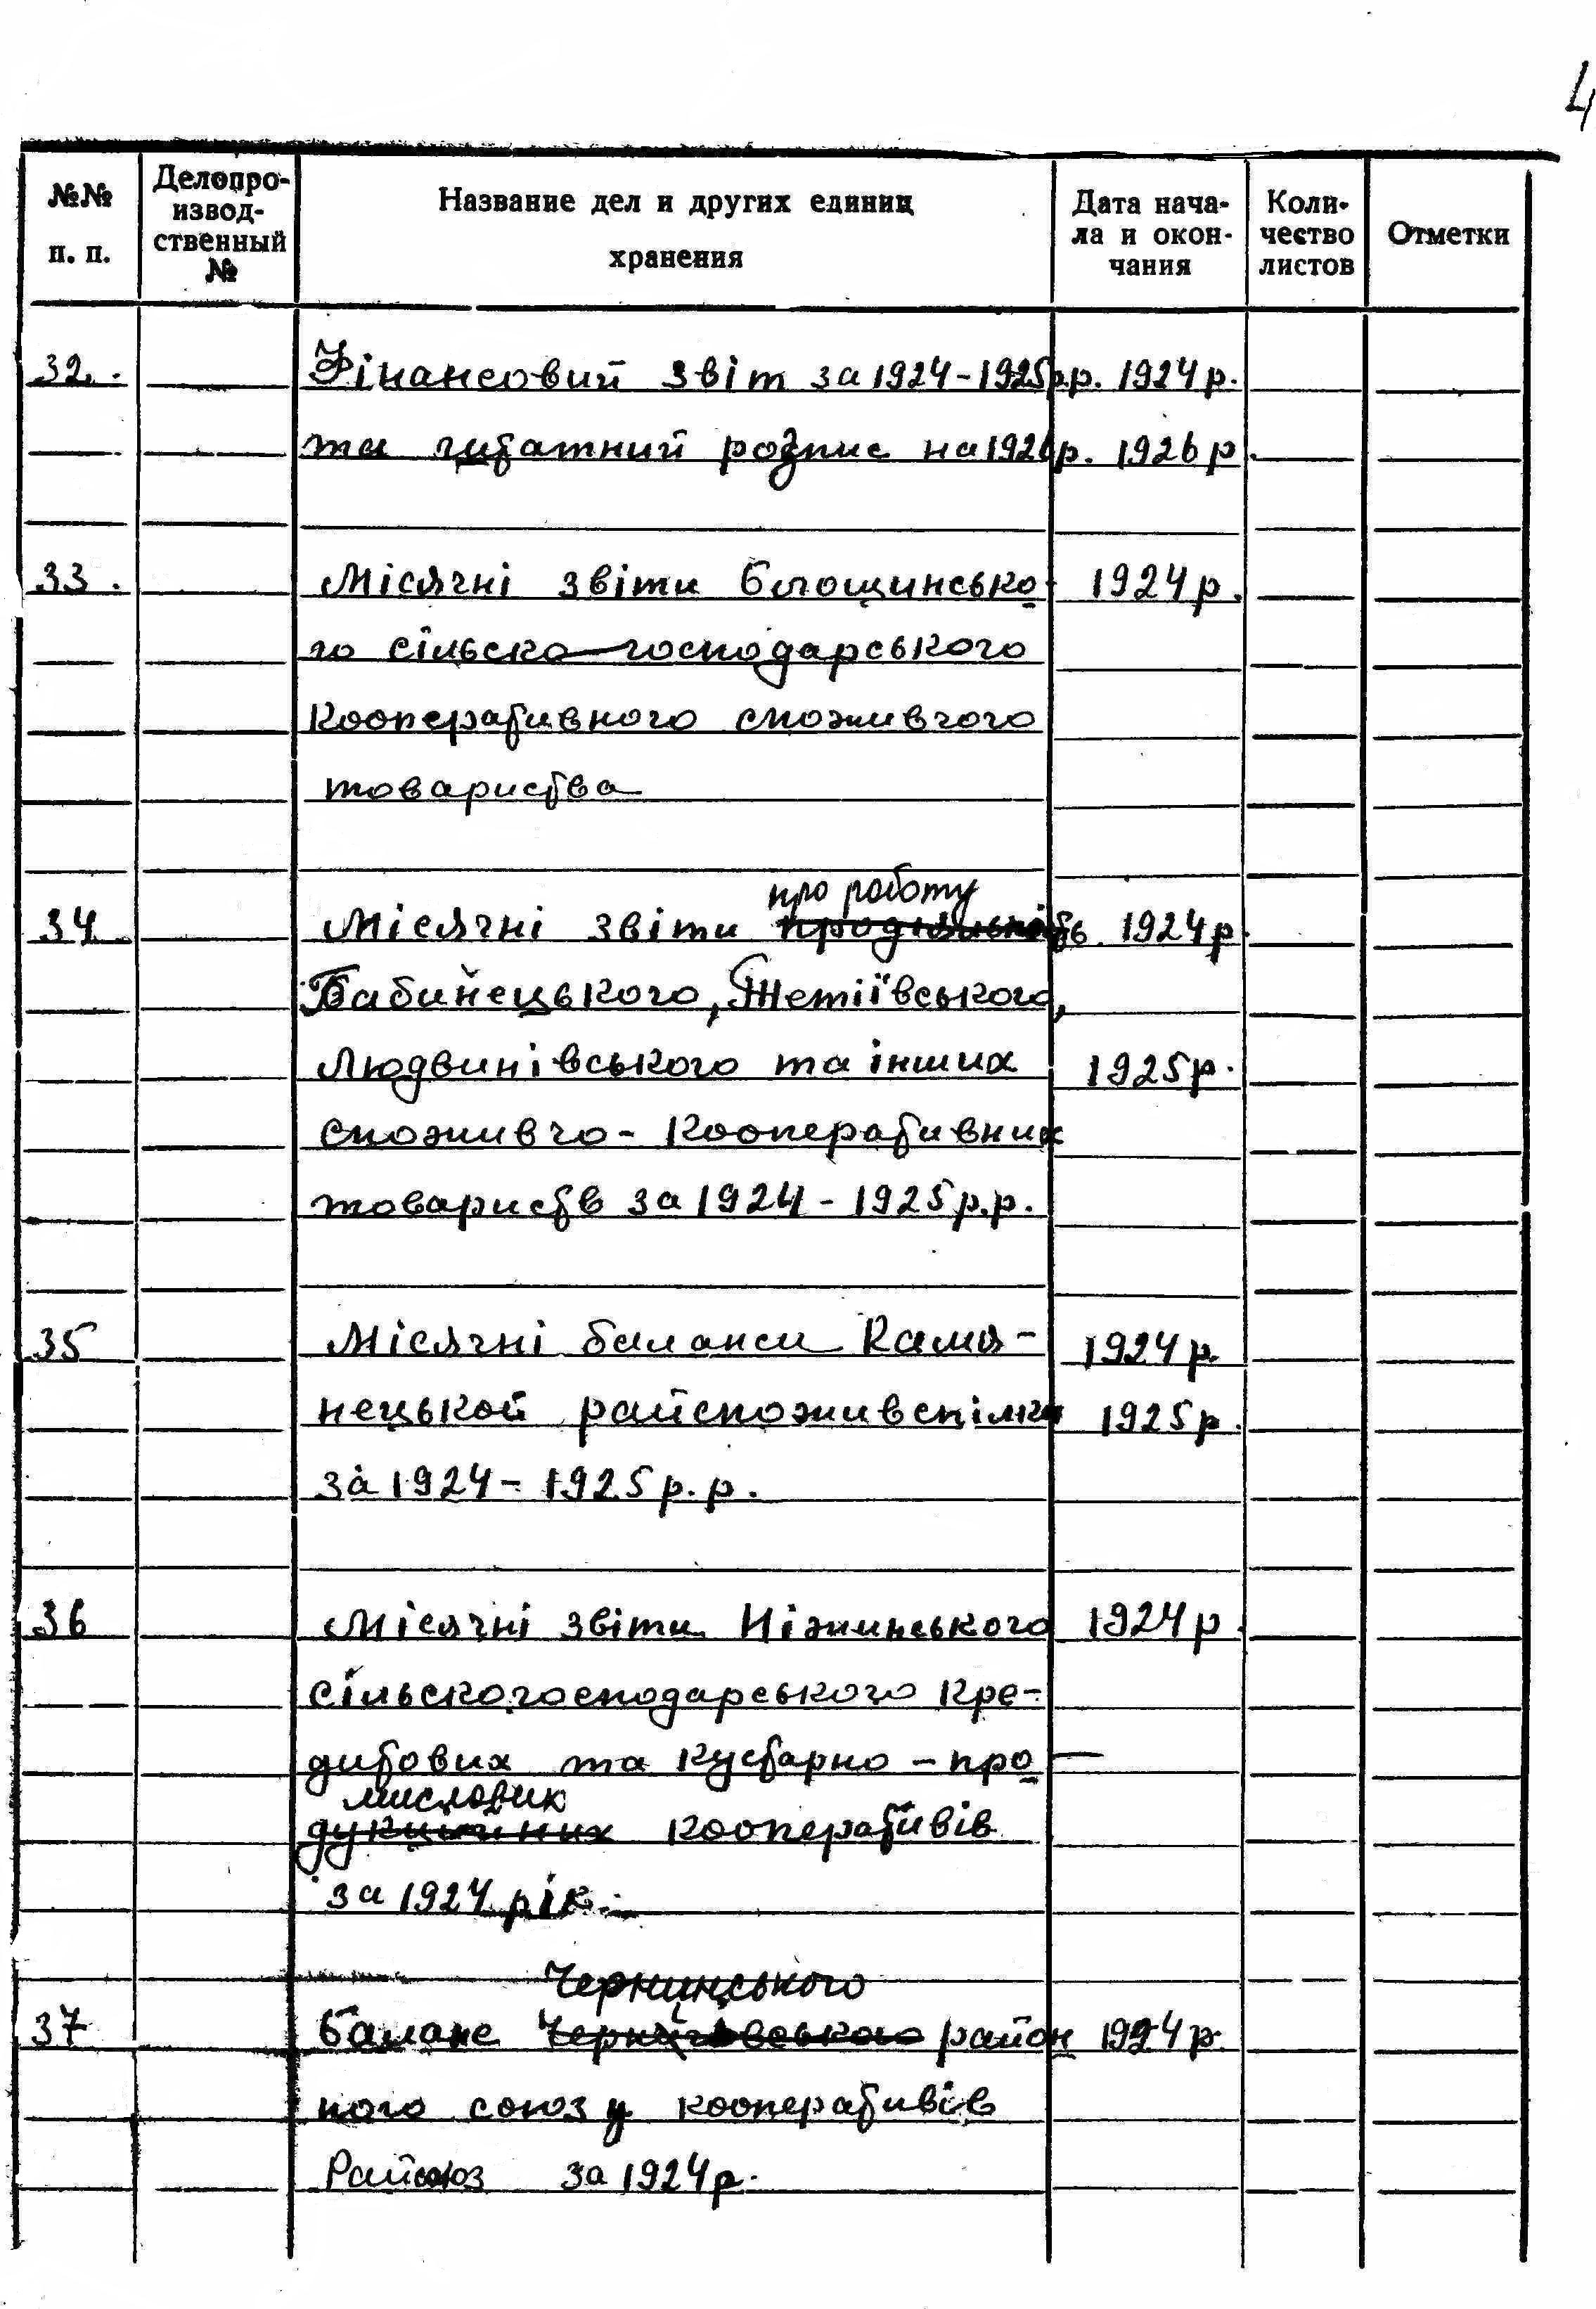 4
№№ п. п.
Делопро-
извод-
ственный
№
Название дел и других единиц
хранения
Дата нача-
ла и окон-
чания
Коли-
чество
листов
Отметки
32. Фінансовий звіт за 1924-1925р.р. 1924р.
та штатний розпис на 1926р. 1926р.
33. Місячні звіти Білощинсько- 1924р.
го сільско-господарського
кооперативного споживчого
товариства
про роботу
34 Місячні звіти продіяльність 1924р.
Бабинецького, Тетіївського,
Людвинівського та інших 1925р.
споживчо-кооперативних
товариств за 1924-1925р.р.
35 Місячні баланси Камя- 1924р.
нецької райспоживспілки 1925р.
за 1924-1925р.р.
36 Місячні звіти Ніжинського 1924р.
сільскогосподарського кре-
дитових та кустарно-про —
мислових
дукційних кооперативів
за 1924 рік.
Чернинського
37 Баланс Чернігівського район 1924р.
ного союзу кооперативів
Райсоюз за 1924р.